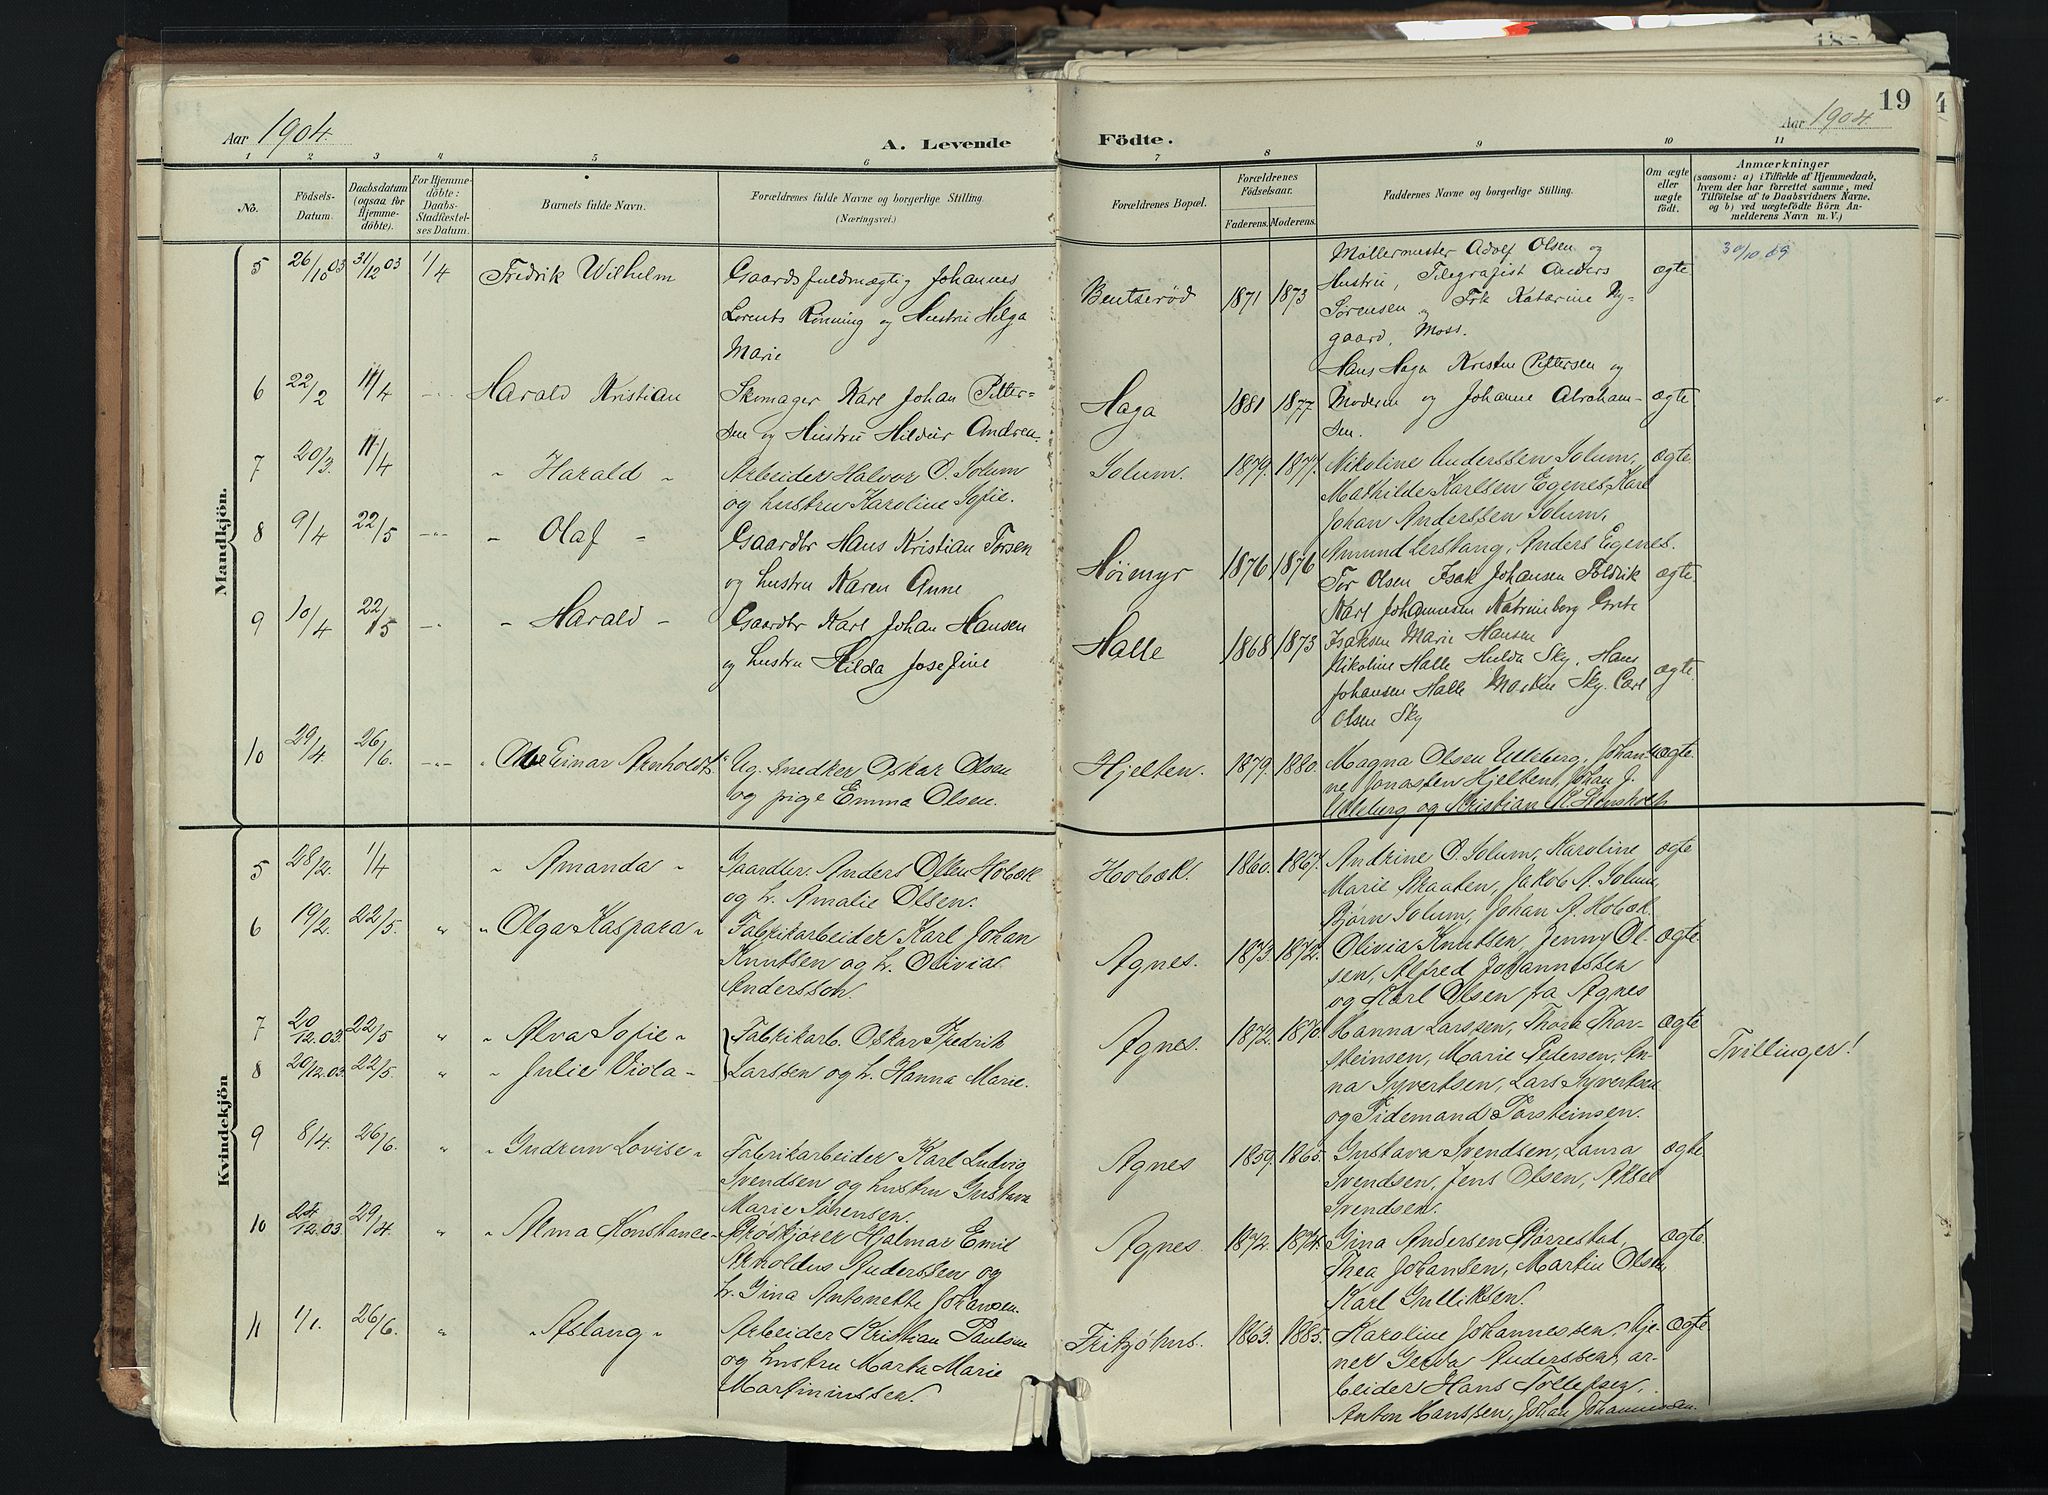 19
Aar 1904.
A. Levende
Födte.
Aar 1904.
1 2 3 4 5 6 7 8 9 10 11
No.
Födsels-
Datum.
Daabsdatum
(ogsaa for
Hjemme-
döbte).
For Hjemme-
döbte:
Daabs-
Stadfæstel-
ses Datum.
Barnets fulde Navn.
Forældrenes fulde Navne og borgerlige Stilling.
(Næringsvei.)
Forældrenes Bopæl.
Forældrenes
Födselsaar.
Faderens.
Moderens.
Faddernes Navne og borgerlige Stilling.
Om ægte
eller
uægte
födt.
Anmærkninger
(saasom: a) i Tilfælde af Hjemmedaab,
hvem der har forrettet samme, med
Tilföielse af to Daabsvidners Navne.
og b) ved uægtefödte Börn An-
melderens Navn m. V.)
Mandkjön.
5 26/10 03 31/12 03 1/4 Fredrik Wilhelm
Gaardsfuldmægtig Johannes
Lorents Rönning og Hustru Helga
Marie
Bentseröd 1871 1873
Möllermester Adolf Olsen og
Hustru, Telegrafist Anders
Sørensen og Frk Katarine Ny-
gaard, Moss.
ægte 30/10.09
6 22/2 11/4 Harald Kristian
Skomager Karl Johan Petter-
sen og Hustru Hildur Andren.
Haga 1881 1877
Hans Haga Kristen Pettersen og
Moderen og Johanne Abraham-
sen.
ægte
7 20/3. 11/4 " Harald "
Arbeider Halvor O. Solum
og hustru Karoline Sofie.
Solum. 1879. 1877.
Nikoline Anderssen Solum,
Mathilde Karlsen Egenes, Karl
Johan Anderssen Solum.
ægte.
8 9/4 22/5 " Olaf "
Gaardbr Hans Kristian Torsen
og hustru Karen Anne
Höimyr 1876 1876
Amund Lerstang, Anders Egenes.
Tor Olsen Isak Johansen Foldvik
Karl Johannesen
ægte.
9 10/4 22/5 " Harald "
Gaardbr Karl Johan Hansen
og hustru Hilda Josefine
Halle 1868 1873
Isaksen Marie Hansen
Nikoline Halle Hulda Sky, Hans
Johansen Halle Sky. Carl
Olsen Sky
ægte.
10 29/4 26/6. " Einar Arnholdt "
Ug. snedker Oskar Olsen
og pige Emma Olsen.
Hjelten. 1879. 1880.
Magna Olsen Ulleberg, Johan-
ne Jonassen Hjelten, Johan J.
Ulleberg og Kristian
uægte.
Kvindekjön
5 28/2. 1/4 " Amanda "
Gaardbr. Anders Olsen Hobæk
og h. Amalie Olsen.
Hobæk. 1860. 1867.
Andrine O. Solum, Karoline
Marie Braaten, Jakob A. Solum,
Bjørn Solum, Johan A. Hobæk.
ægte
6 19/2. 22/5. " " Olga Kaspara "
Fabrikarbeider Karl Johan
Knutsen og h. Olivia
Andersson.
Agnes. 1873. 1872.
Olivia Knutsen, Jenny Ol-
sen, Alfred Johannessen
og Karl Olsen fra Agnes
ægte.
7 20/12.03. 22/5 " " Alva Sofie "
Fabrikarb. Oskar Fredrik
Agnes. 1872. 1870.
Hanna Larssen, Thora Thor-
ægte
Tvillinger!
8 20/12.03. 22/5. " " Julie Viola "
Larssen og h. Hanna Marie.
steinsen, Marie Pedersen, An-
na Syvertsen, Lars Syvertsen
og Tidemand Torsteinsen.
9 8/4. 26/6. " " Gudrun Lovise "
Fabrikarbeider Karl Ludvig
Svendsen og hustru Gustava
Marie Sørensen.
Agnes 1859. 1865.
Gustava Svendsen, Laura
Svendsen, Jens Olsen, Aksel
Svendsen.
ægte
10 24/12.03. 29/4. " " Alma Konstance "
Hjalmar Emil
Arnoldus Anderssen og
h. Gina Antonette Johansen.
Agnes. 1872. 1874.
Gina Andersen Børrestad,
Thea Johansen, Martin Olsen,
Karl Gulliksen.
ægte.
11 1/1. 26/6. " " Aslaug "
Arbeider Kristian Paulsen
og hustru Marta Marie
Martinussen.
Fritzöhus. 1863. 1885.
Karoline Johannessen, tje-
ner Gerda Anderssen, ar-
beider Hans Tollefsen,
Anton Hanssen, Johan Johannessen.
ægte